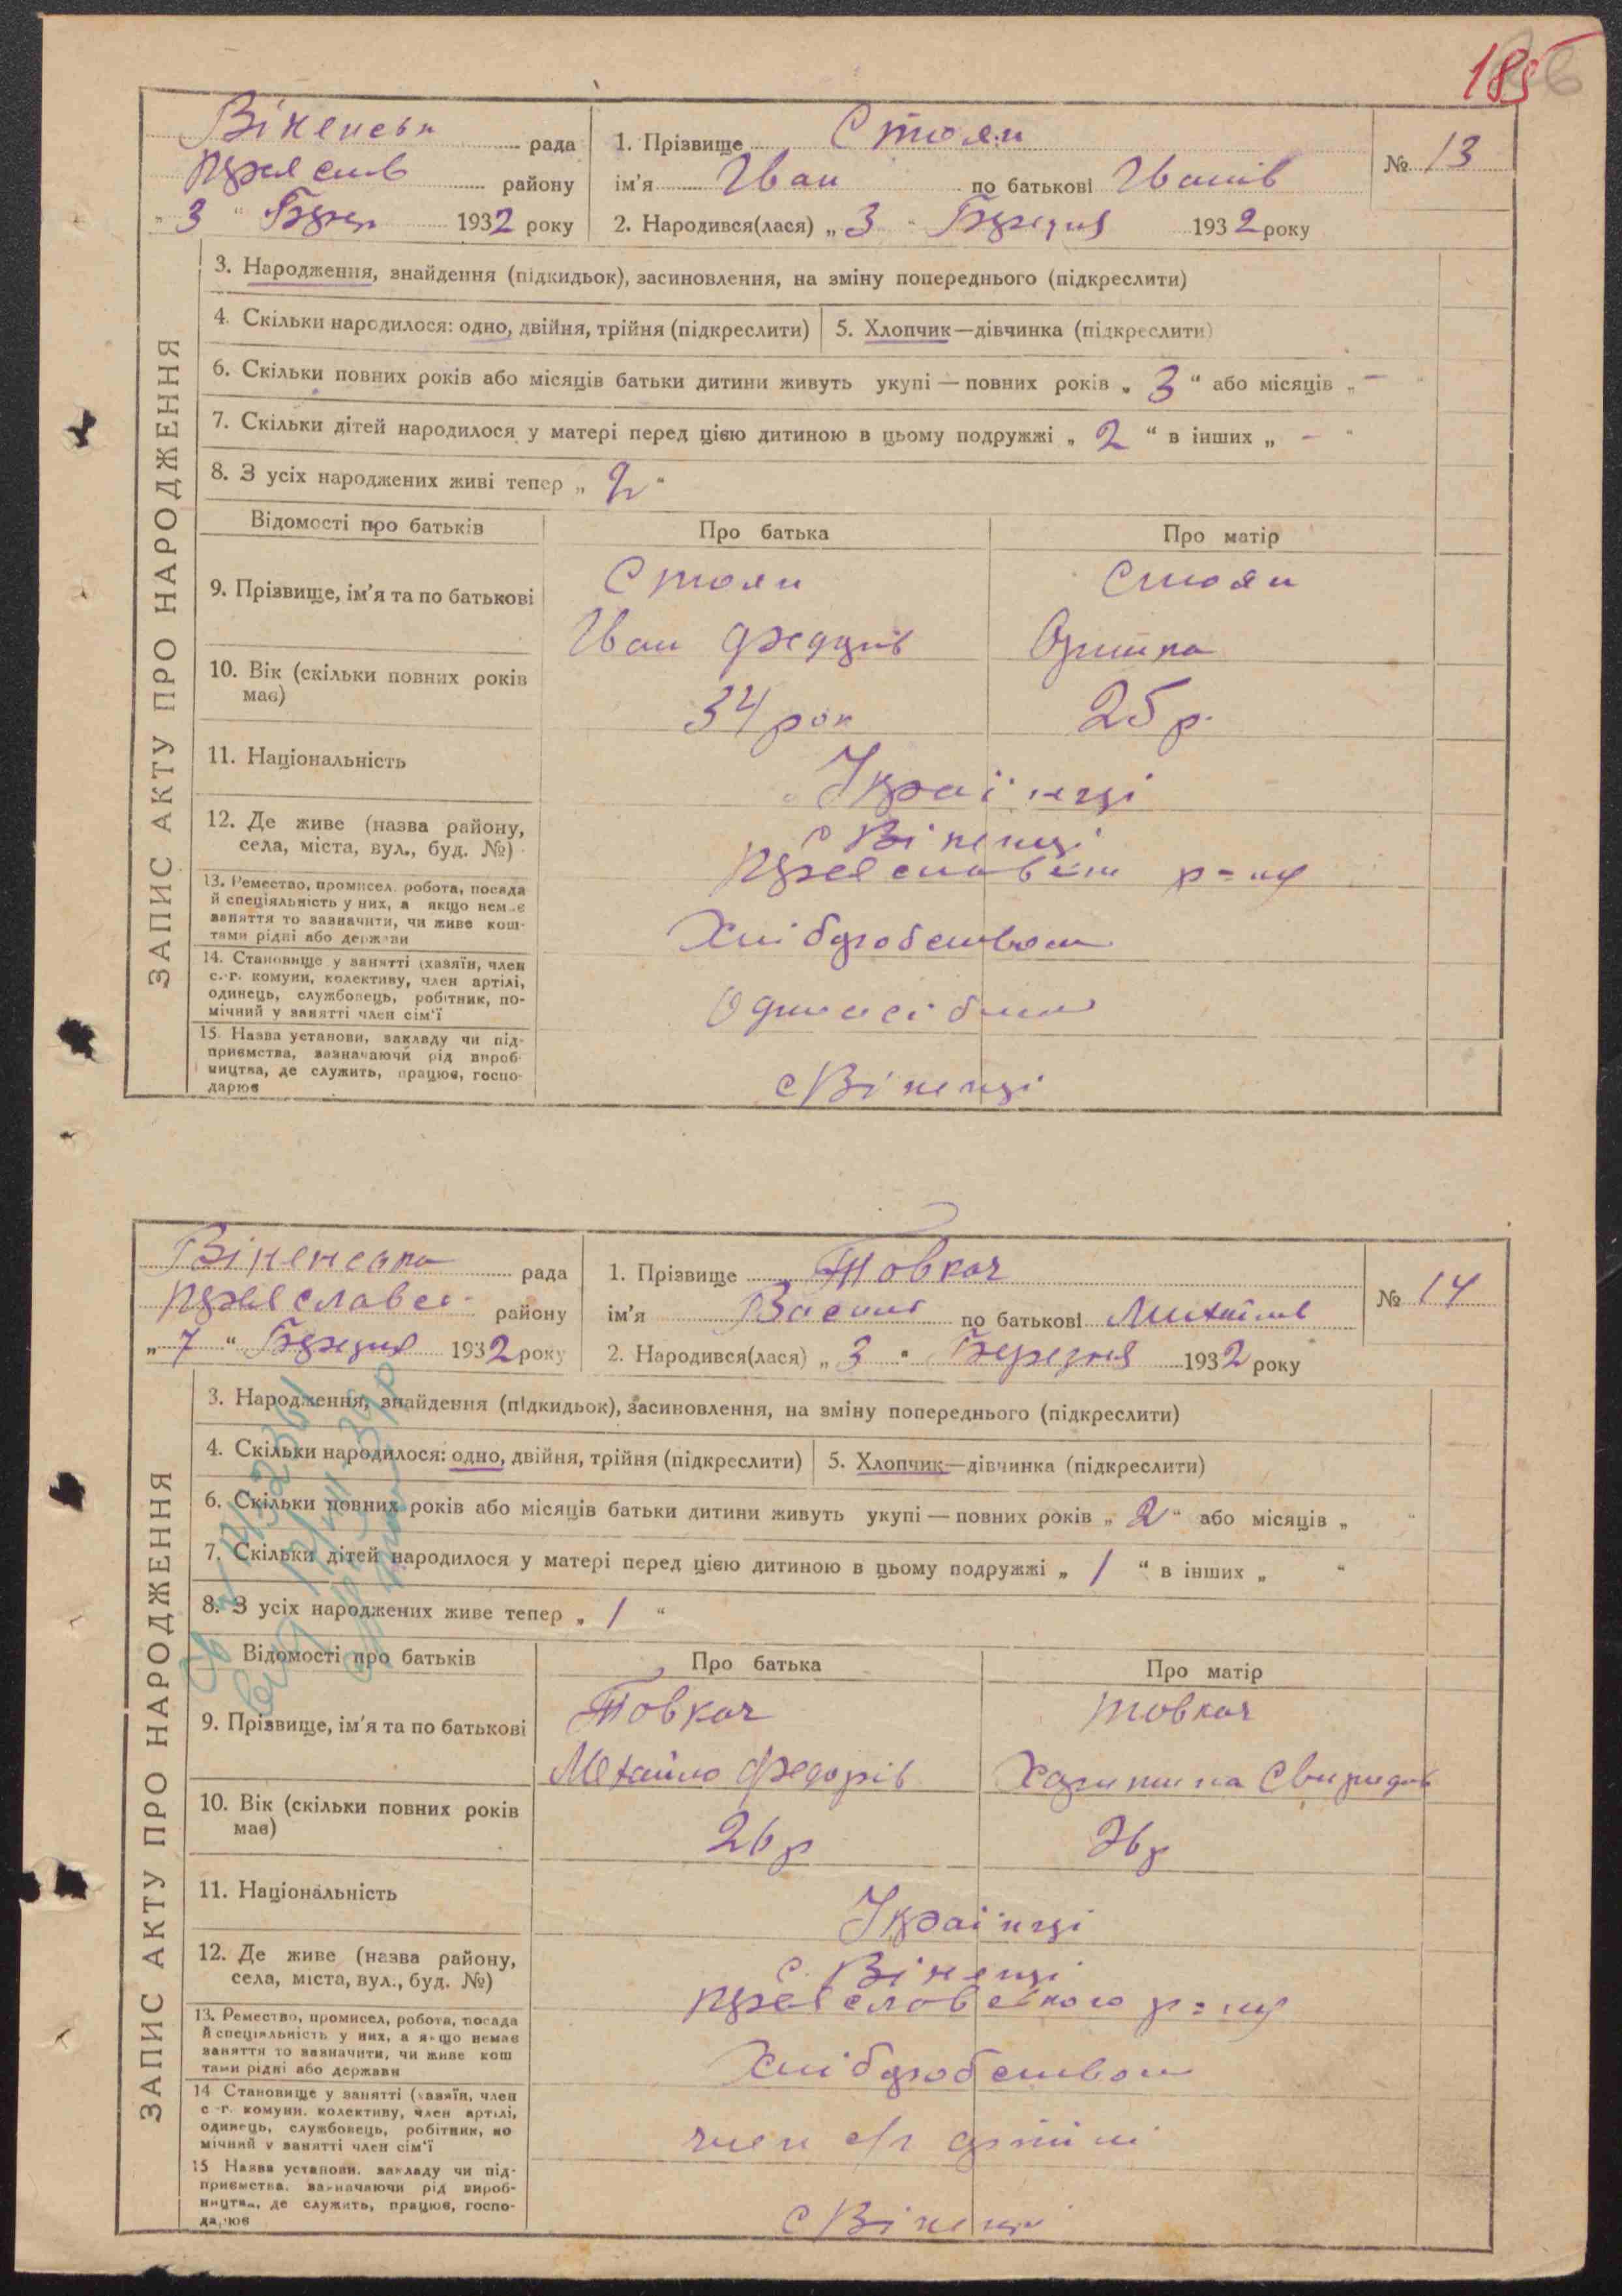 185
Віненськ рада
Переяслав району
„ 3 “ Берез 1932 року
1. Прізвище Стоян
ім’я Іван по батькові Іванів
2. Народився(лася) „ 3 “ Березня 1932 року
№ 13
ЗАПИС АКТУ ПРО НАРОДЖЕННЯ
3. Народження, знайдення (підкидьок), засиновлення, на зміну попереднього (підкреслити)
4. Скільки народилося: одно, двійня, трійня (підкреслити) 5. Хлопчик—дівчинка (підкреслити)
6. Скільки повних років або місяців батьки дитини живуть укупі — повних років „ 3 “ або місяців „ – “
7. Скільки дітей народилося у матері перед цією дитиною в цьому подружжі „ 2 “ в інших „ – “
8. З усіх народжених живі тепер „ 2 “
Відомості про батьків Про батька Про матір
9. Прізвище, ім’я та по батькові
Стоян Стоян
Іван Федорів Оришка
10. Вік (скільки повних років має)
34 рок 25 р.
11. Національність
Українці
12. Де живе (назва району,
села, міста, вул., буд. №)
с Віненці
р-ну
13. Ремество, промисел, робота, посада
й спеціяльність у них, а якщо немає
заняття то зазначити, чи живе кош-
тами рідні або держави
Хліборобством
14. Становище у занятті (хазяїн, член
с.-г. комуни, колективу, член артілі,
одинець, службовець, робітник, по-
мічний у занятті член сім’ї
Одноосібник
15. Назва установи, закладу чи під-
приємства, зазначаючи рід вироб-
ництва, де служить, працює, госпо-
дарює
с Віненці
Віненська рада
Переяславсь району
„ 7 “ Березня 1932 року
1. Прізвище Товкач
ім’я Василь по батькові Михайлів
2. Народився(лася) „ 3 “ Березня 1932 року
№ 14
ЗАПИС АКТУ ПРО НАРОДЖЕННЯ
3. Народження, знайдення (підкидьок), засиновлення, на зміну попереднього (підкреслити)
4. Скільки народилося: одно, двійня, трійня (підкреслити) 5. Хлопчик—дівчинка (підкреслити)
6. Скільки повних років або місяців батьки дитини живуть укупі — повних років „ 2 “ або місяців „ “
7. Скільки дітей народилося у матері перед цією дитиною в цьому подружжі „ 1 “ в інших „ “
8. З усіх народжених живе тепер „ 1 “
Відомості про батьків Про батька Про матір
9. Прізвище, ім’я та по батькові
Товкач Товкач
Михайло Федорів Харитина Свиридів
10. Вік (скільки повних років
має)
26 р 26 р
11. Національність
Українці
12. Де живе (назва району,
села, міста, вул., буд. №)
с. Віненці
Переяславського р-ну
13. Ремество, промисел, робота, посада
й спеціяльність у них, а якщо немає
заняття то зазначити, чи живе кош
тами рідні або держави
Хліборобством
14 Становище у занятті (хазяїн, член
с-г. комуни, колективу, член артілі,
одинець, службовець, робітник, по
мічний у занятті член сім’ї
член с/г артілі
15 Назва установи, закладу чи під-
приємства, зазначаючи рід вироб-
ництва, де служить, працює, госпо-
дарює
с Віненці